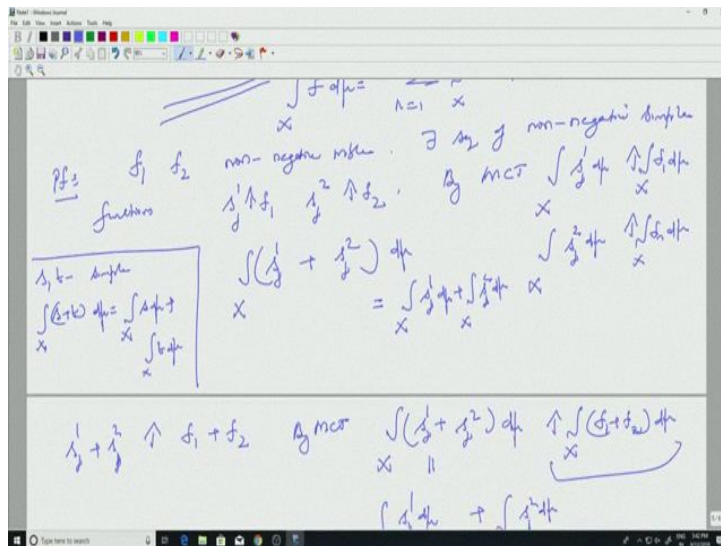 Note1 - Windows Journal
File Edit View Insert Actions Tools Help
∫_X f dμ = Σ_{n=1} ∫_X
Pf: f_1 f_2 non-negative mble. ∃ seq of non-negative simple
functions s_j^1 ↑ f_1 s_j^2 ↑ f_2. By MCT ∫_X s_j^1 dμ ↑ ∫_X f_1 dμ
∫_X s_j^2 dμ ↑ ∫_X f_2 dμ
s, t - simple
∫_X (s+t) dμ = ∫_X s dμ +
∫_X t dμ
∫_X (s_j^1 + s_j^2) dμ
= ∫_X s_j^1 dμ + ∫_X s_j^2 dμ
s_j^1 + s_j^2 ↑ f_1 + f_2 By MCT ∫_X (s_j^1 + s_j^2) dμ ↑ ∫_X (f_1 + f_2) dμ
||
∫ s_j^1 dμ + ∫ s_j^2 dμ
Type here to search
ENG 3:42 PM